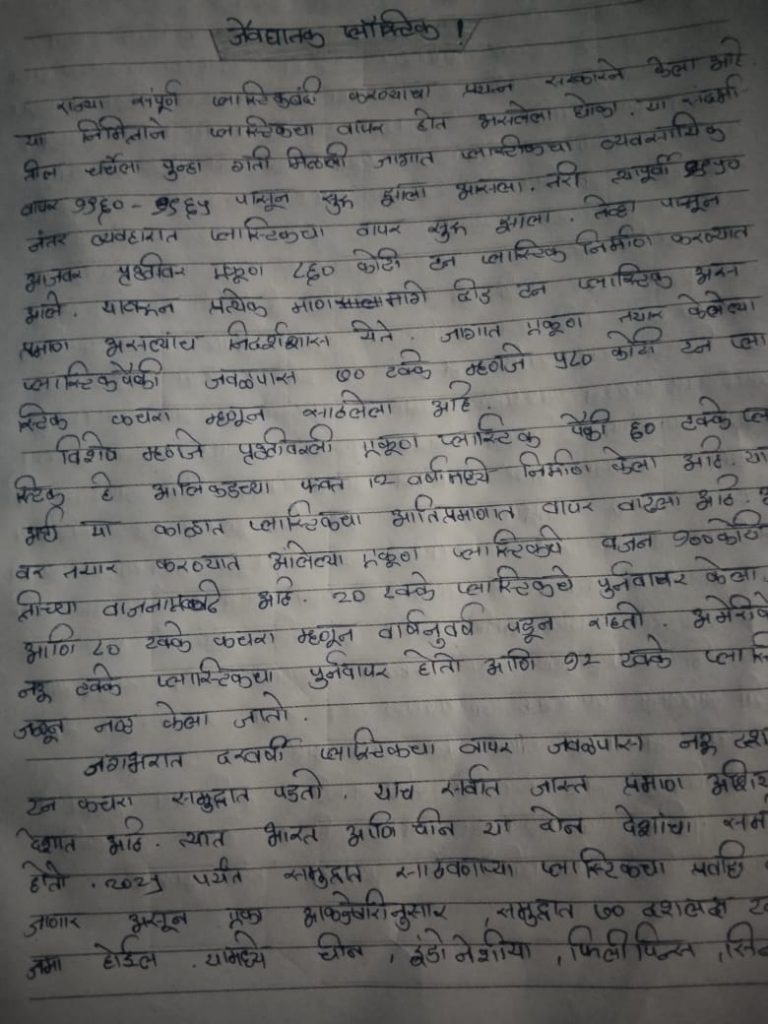 जैवघातक प्लॅस्टिक !
राज्या संपूर्ण प्लास्टिकबंदी करण्याचा प्रयत्न सरकारने केला आहे.
या निमित्ताने प्लास्टिकचा वापर होत असलेला धोका. या संदर्भा
तील चर्चेला पुन्हा गती मिळाली जागात प्लास्टीकचा व्यवसायिक
वापर १९६० - १९६५ पासून सुरू झाला असला. तरी त्यापूर्वी १९५०
नंतर व्यवहारात प्लास्टिकचा वापर सुरू झाला. तेव्हा पासून
आजवर पृथ्वीवर एकूण ८६० कोटी टन प्लास्टिक निर्माण करण्यात
आले. याचकन प्रत्येक माणसामागे दीड टन प्लास्टिक असे
प्रमाण असल्याच निदर्शशास येते. जागात एकूण तयार केलेल्या
प्लास्टिकपैकी जवळपास ७० टक्के म्हणजे ५८० कोटी टन प्ला
स्टिक कचरा म्हणून साठलेला आहे.
विशेष म्हणजे पृथ्वीवरली एकूण प्लास्टिक पैकी ६० टक्के प्ला
स्टिक हे अलिकडच्या फक्त १२ वर्षामध्ये निर्माण केला आहे. या
मही या काळात प्लास्टिकचा अतिप्रमाणात वापर वाढला आहे.
वर तयार करण्यात आलेल्या एकूण प्लास्टिकचे वजन १०० कोटी
त्तीच्या वाजना आहे. २० टक्के प्लास्टिकचे पुर्नवापर केला.
आणि ८० टक्के कचरा म्हणून वार्षनुवर्ष पडून राहतो. अमेरिके
नऊ टक्के प्लास्टिकचा पुर्नवापर होतो आणि १२ टक्के प्लास्टि
जळून नष्ट केला जातो.
जगभरात दरवर्षी प्लास्टिकचा वापर जवळपास नऊ दश
टन कचरा समुद्रात पडतो. याच सर्वात जास्त प्रमाण आशिया
देशात आहे. त्यात भारत आणि चीन या दोन देशांचा समा
होतो. २०२५ पर्यंत समुद्रात साठवणाऱ्या प्लास्टिकचा
जाणार असून एका आकडेवारीनुसार, समुद्रात ७० दशलक्ष ट
जमा होईल. यामध्ये चीन, इंडोनेशीया, फिलीपिन्स,